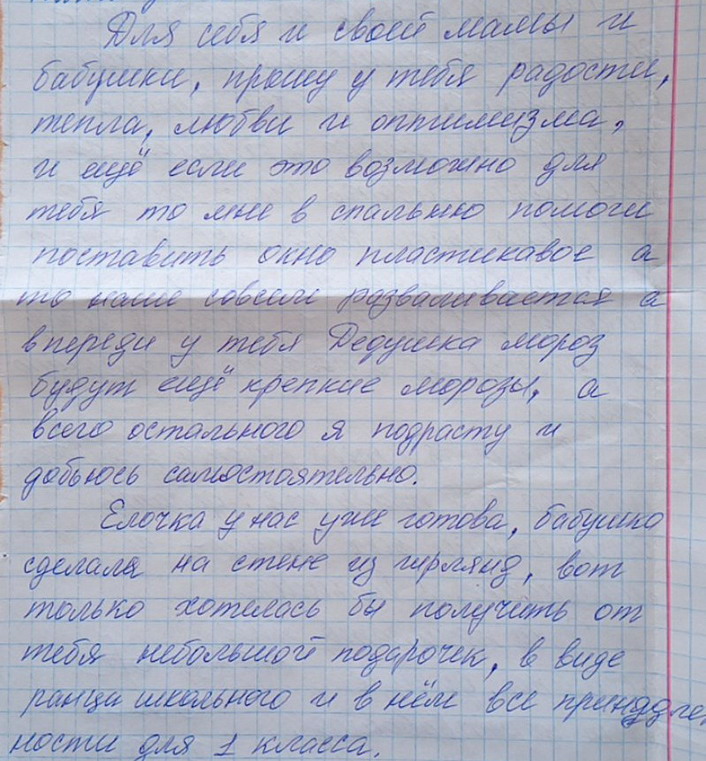 Для себя и своей мамы и
бабушки, прошу у тебя радости,
тепла, любви и оптимизма,
и ещё если это возможно для
тебя то мне в спальню помоги
поставить окно пластикавое а
то наше совсем разваливается а
впереди у тебя Дедушка мороз
будут ещё крепкие морозы, а
всего остального я подрасту и
добьюсь самостоятельно.
Елочка у нас уже готова, бабушка
сделала на стене из гирлянд, вот
только хотелась бы получить от
тебя небольшой подарочек, в виде
ранца школьного и в нём все
ности для 1 класса.